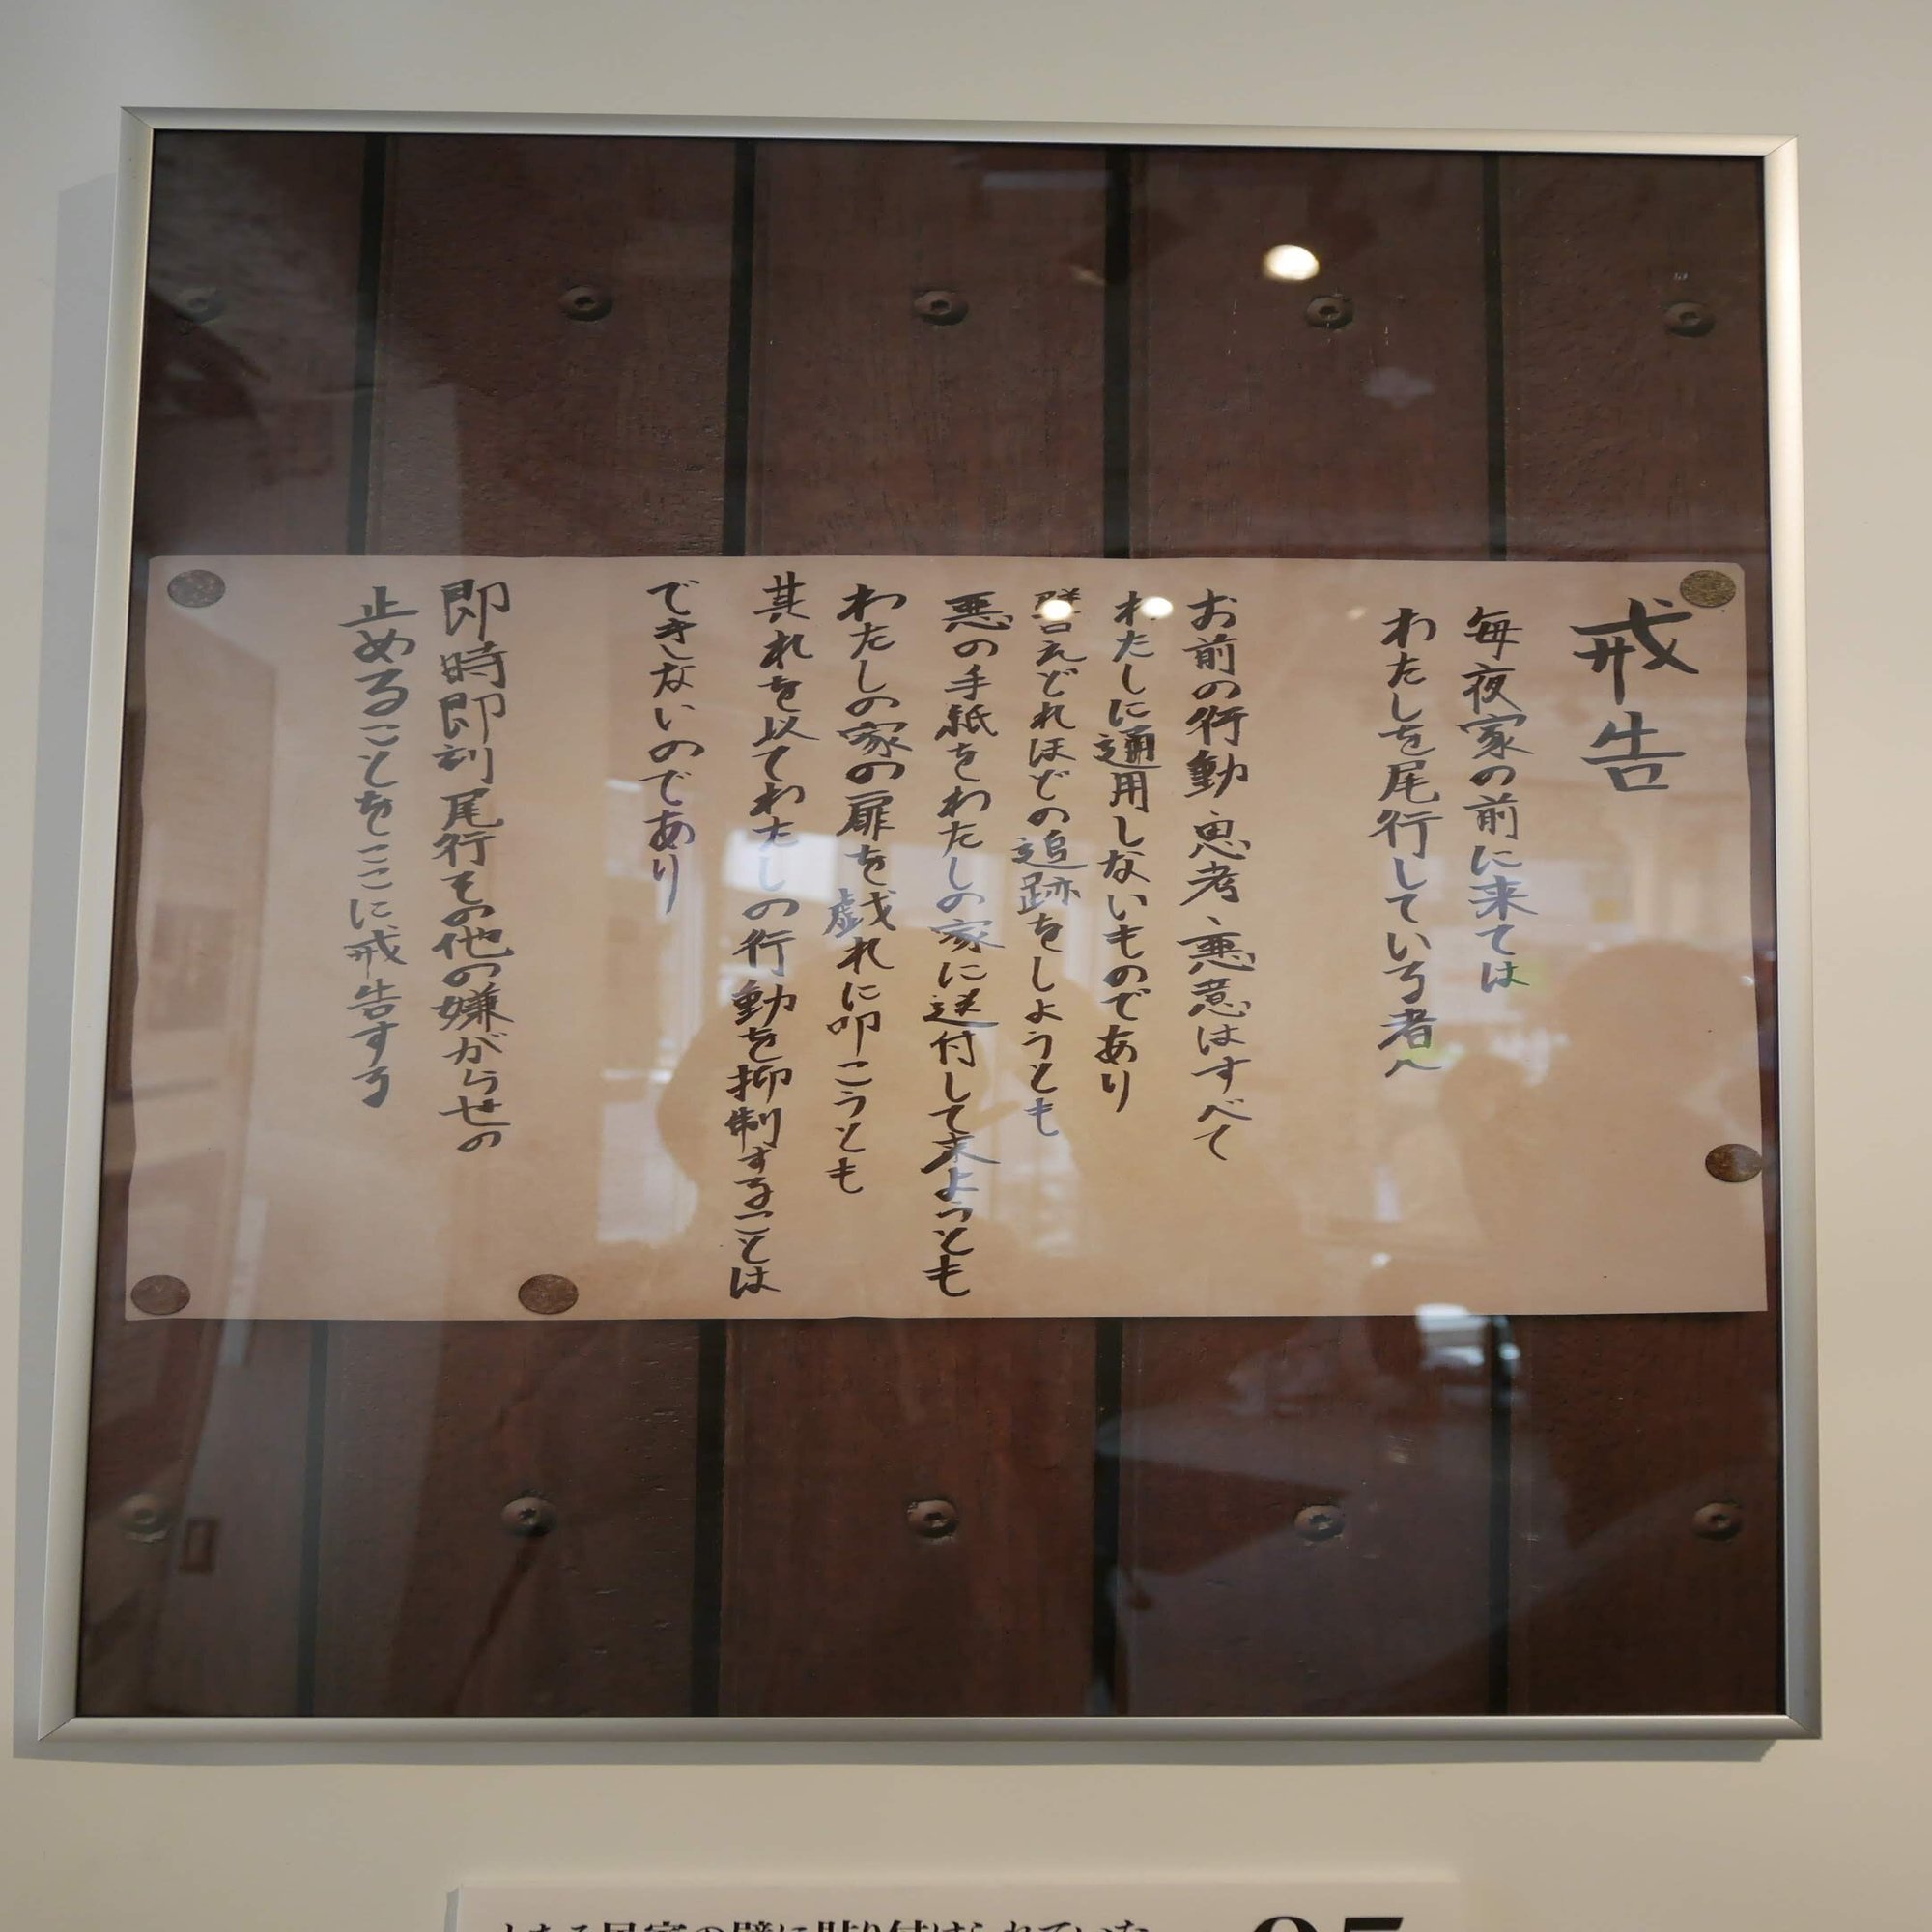 戒告
毎夜家の前に来ては
わたしを尾行している者へ
お前の行動、思考、悪意はすべて
わたしに通用しないものであり
譬えどれほどの追跡をしようとも
悪の手紙をわたしの家に送付して来ようとも
わたしの家の扉を戯れに叩こうとも
其れを以てわたしの行動を抑制することは
できないのであり
即時即刻尾行その他の嫌がらせの
止めることをここに戒告する